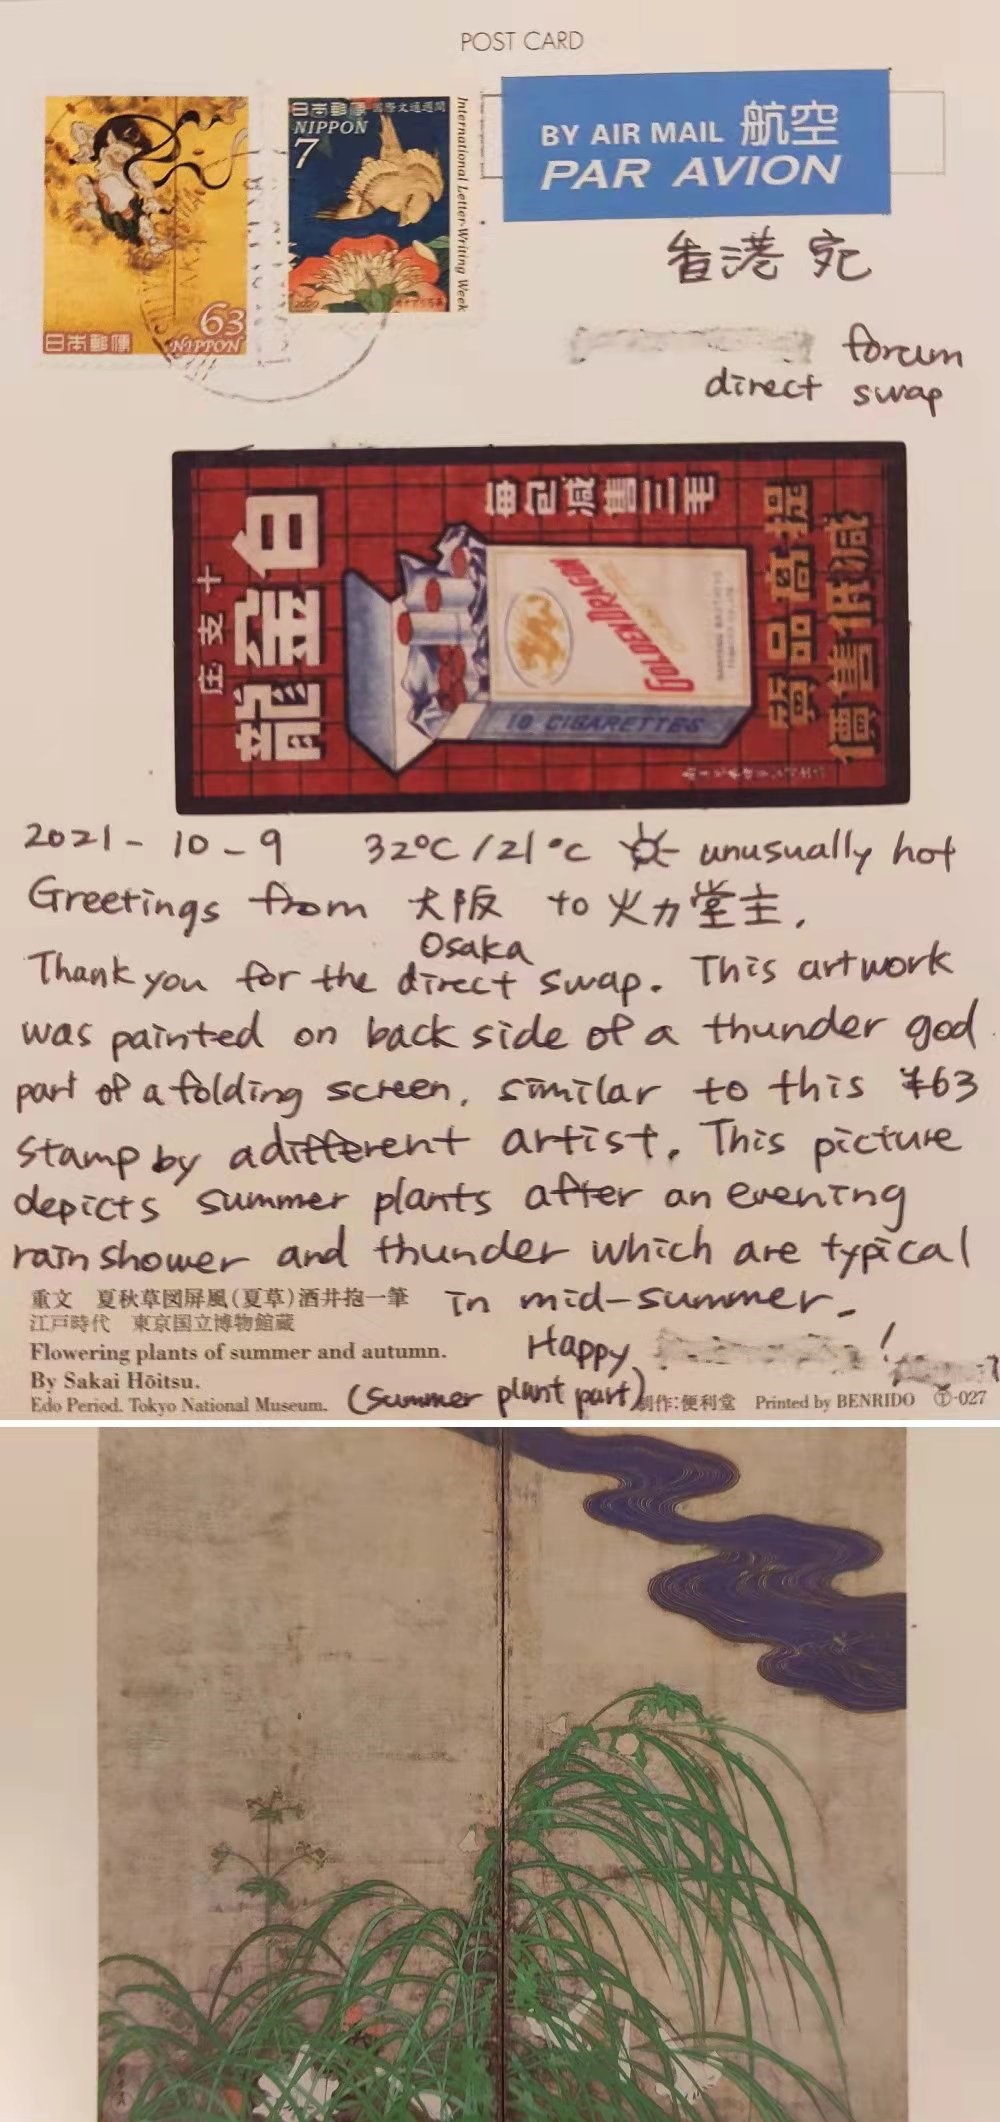 POST CARD
63
日本郵便 NIPPON
日本郵便 国際文通週間
NIPPON
7
International Letter-Writing Week
BY AIR MAIL 航空
PAR AVION
香港 宛
forum
direct swap
每包減售三毛
白金龍
十支庄
GOLDEN DRAGON
10 CIGARETTES
提高品質
減低售價
2021-10-9 32°C/21°C unusually hot
Greetings from 大阪 to 火力堂主.
Osaka
Thank you for the direct swap. This artwork
was painted on back side of a thunder god
part of a folding screen, similar to this ¥63
stamp by a different artist. This picture
depicts summer plants after an evening
rain shower and thunder which are typical
in mid-summer.
Happy !
重文 夏秋草図屏風(夏草)酒井抱一筆
江戸時代 東京国立博物館蔵
Flowering plants of summer and autumn.
By Sakai Hōitsu.
Edo Period. Tokyo National Museum.
(summer plant part)
制作:便利堂 Printed by BENRIDO Ⓣ-027